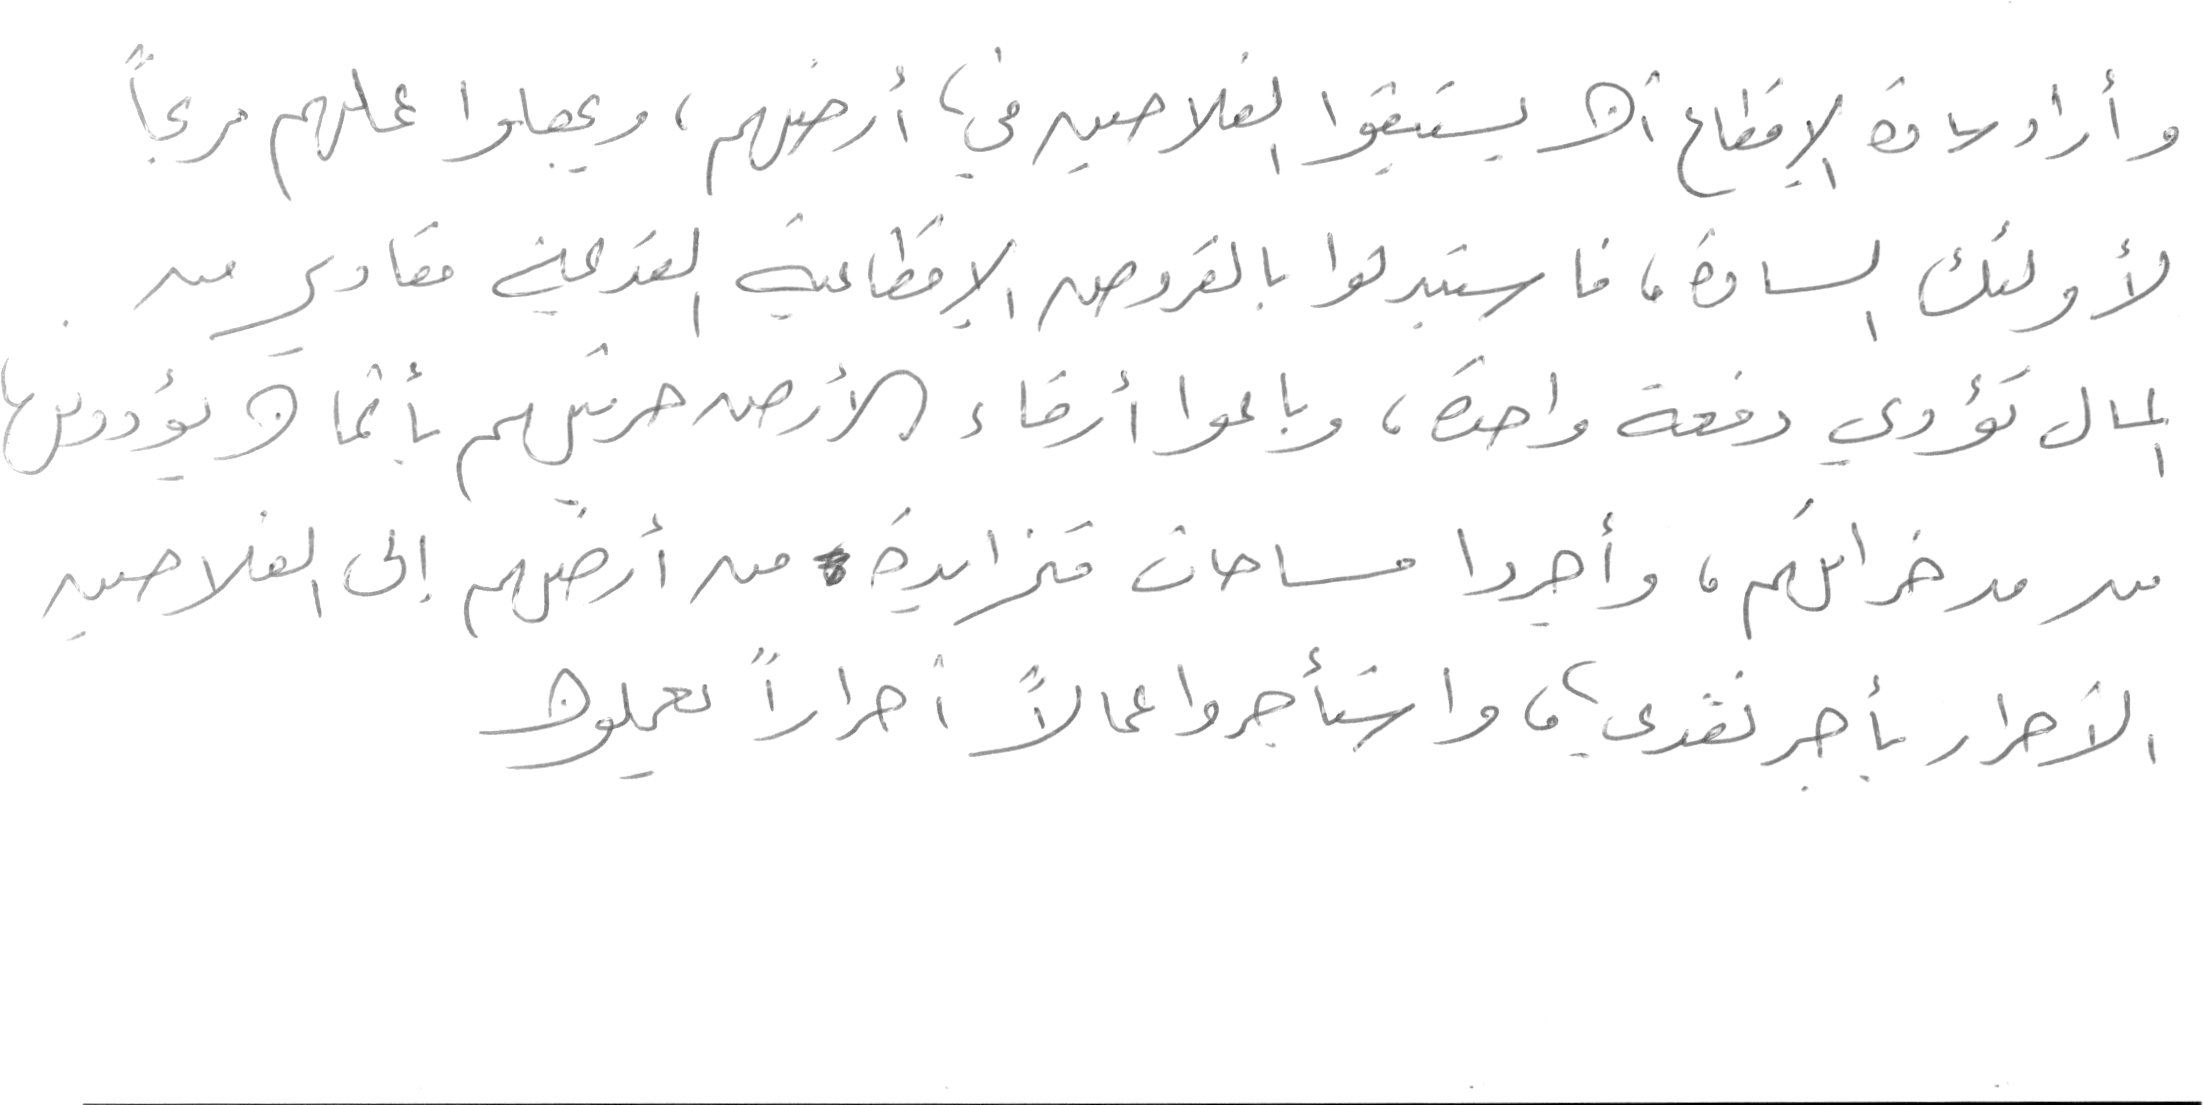 وأراد سادة الإقطاع أن يستبقوا الفلاحين في، أرضهم، ويجعلوا عملهم مربحاً
لأولئك السادة، فاستبدلوا بالفروض الإقطاعية القديمة مقادير من
المال تؤدي دفعة واحدة، وباعوا أرقاء الأرض حريتهم بأثمان يؤدونها
من مدخراتهم، وأجروا مساحات متزايدة من أرضهم إلى الفلاحين
الأحرار بأجر نقدي، واستأجروا عمالاً أحراراً يعملون